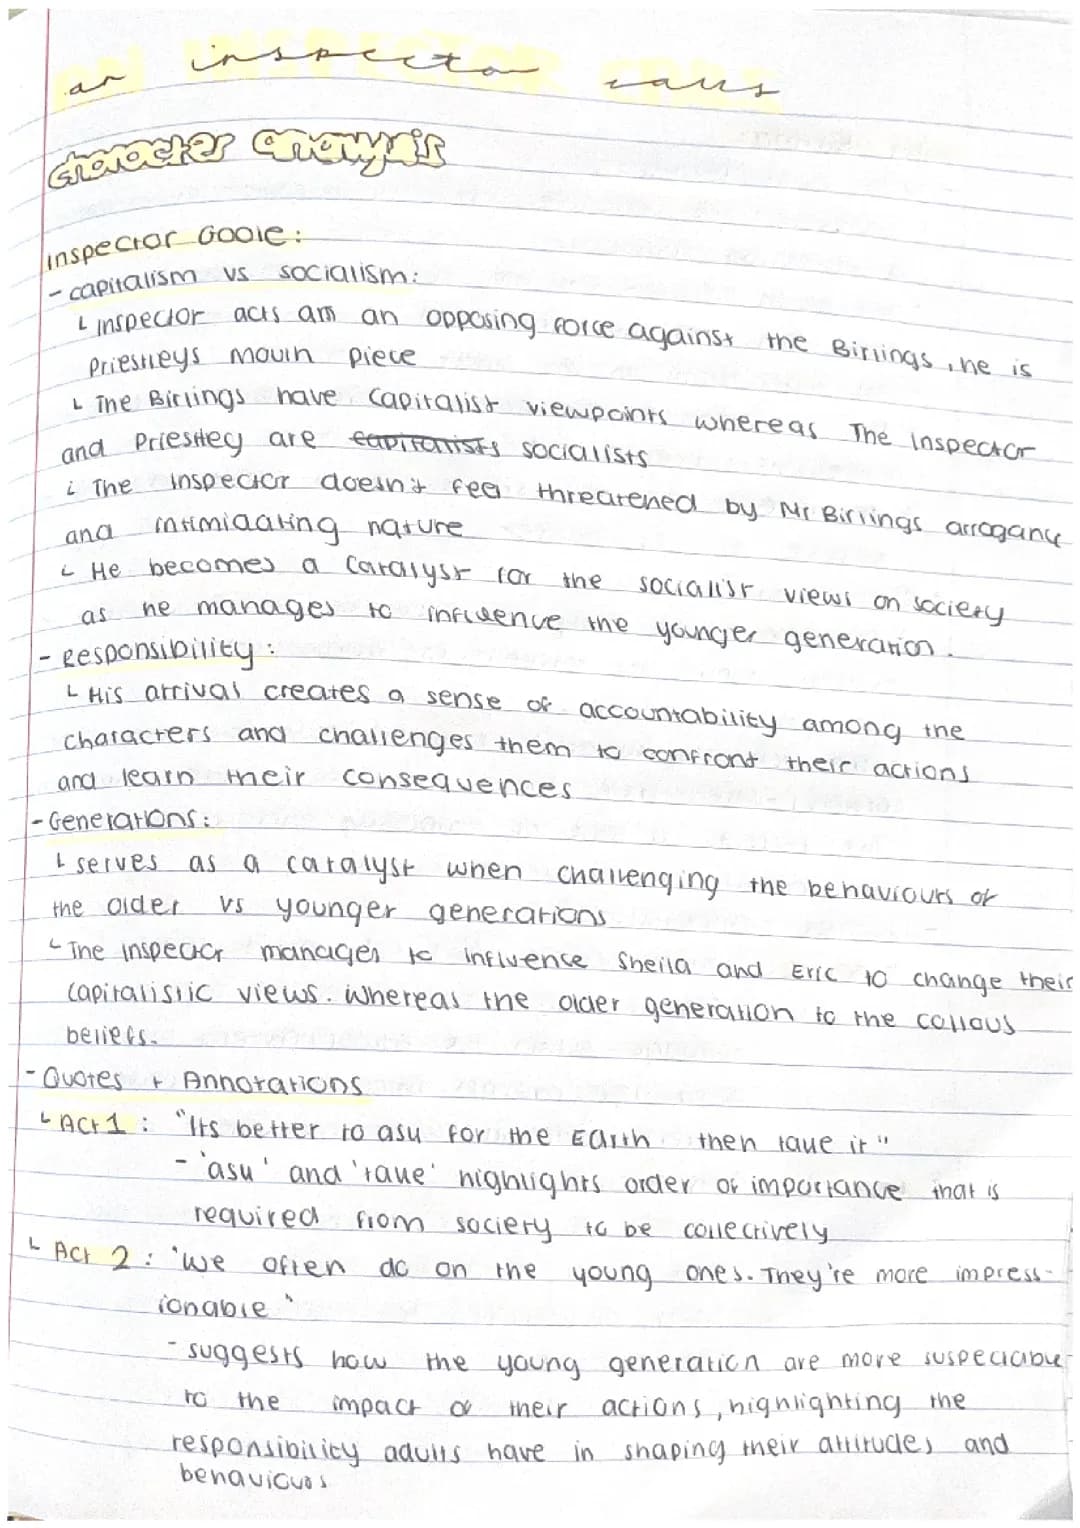 an inspector calls
character analysis
Inspector Goole:
- capitalism vs socialism:
Inspector acts am an opposing force against the Birlings, he is
Priestleys mouth piece
The Birlings have capitalist viewpoints whereas The Inspector
and Priestley are capitalists socialists
The Inspector doesn't feel threatened by Mr Birlings arrogance
and intimidating nature
He becomes a catalyst for the socialist views on society
as he manages to influence the younger generation.
- Responsibility:
His arrival creates a sense of accountability among the
characters and challenges them to confront their actions
and learn their consequences
- Generations:
serves as a catalyst when challenging the behaviours of
the older vs younger generations
The inspector manages to influence Sheila and Eric to change their
capitalistic views. Whereas the older generation to the callous
beliefs.
- Quotes + Annotations
Act 1: "Its better to ask for the Earth then take it"
- 'ask' and 'take' highlights order of importance that is
required from society to be collectively
Act 2: "We often do on the young ones. They're more impress-
ionable"
- suggests how the young generation are more suspectable
to the impact of their actions, highlighting the
responsibility adults have in shaping their attitudes and
behaviours